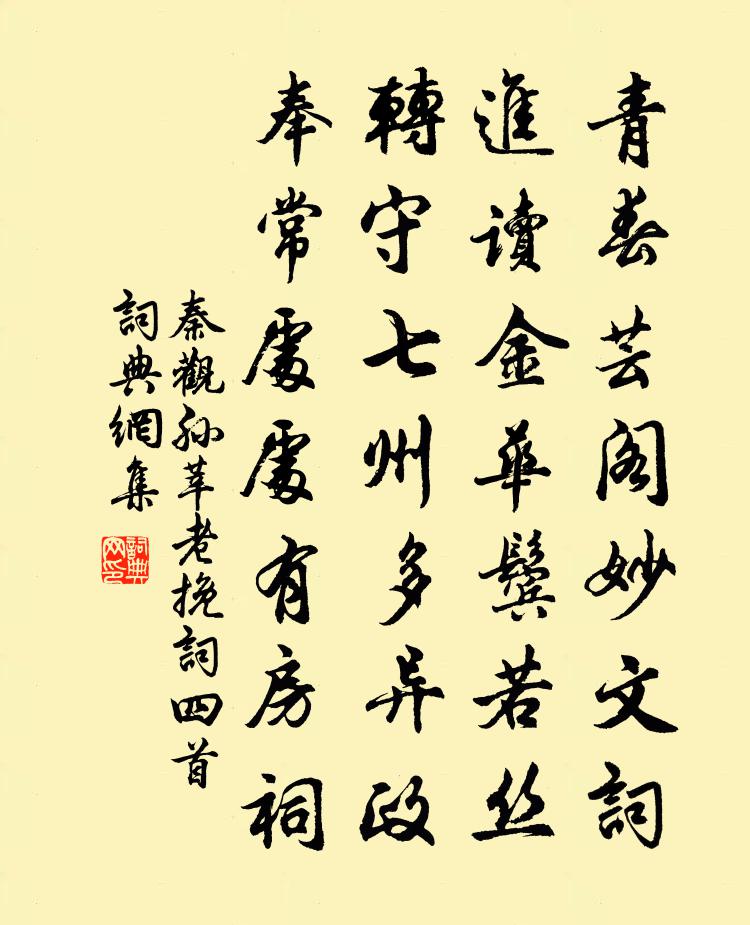 青春芸阁妙文詞
進讀金華鬢若丝
轉守七州多异政
奉常處處有房祠
秦觀孙莘老挽詞四首
詞典網集
詞典
网印